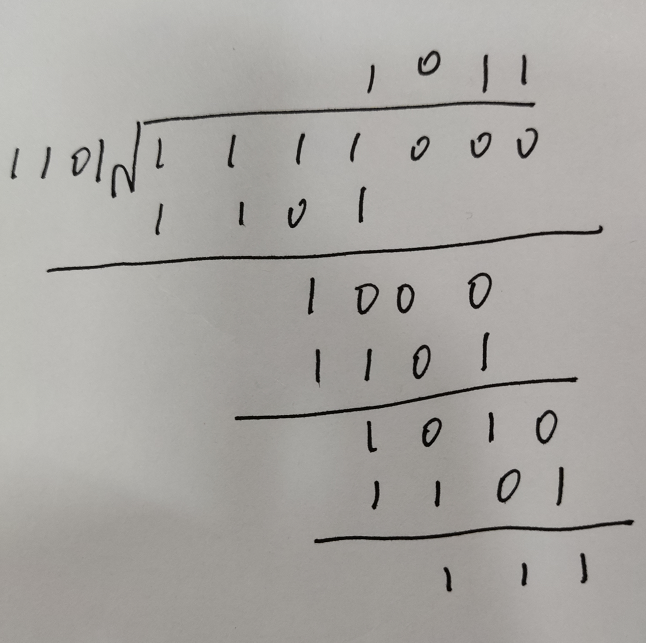 1 0 1 1
1101√1 1 1 1 0 0 0
1 1 0 1
1 0 0 0
1 1 0 1
1 0 1 0
1 1 0 1
1 1 1